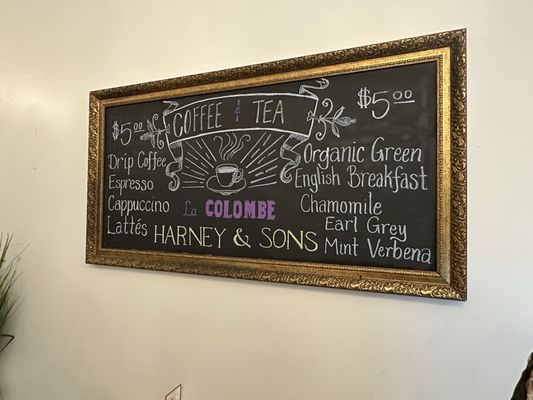 COFFEE & TEA
$5.00
Drip Coffee
Espresso
Cappuccino
Lattés
La COLOMBE
HARNEY & SONS
$5.00
Organic Green
English Breakfast
Chamomile
Earl Grey
Mint Verbena